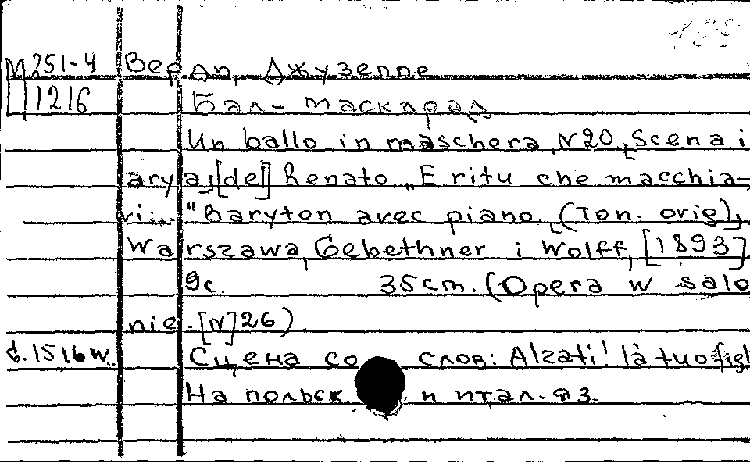 М 251-4 Верди, Джузеппе
1216 Бал-маскарад
Un ballo in maschera, N20, Scena i
arya, [de] Renato „E ritu che macchia-
vi..." Baryton avec piano. (Ton. orig),
Warszawa, Gebethner i Wolff, [1893]
9с. 35cm. (Opera w salo
nie. [N] 26)
d.1516w. Сцена со слов: Alzati! là tuo figl
На польск и итал. яз.